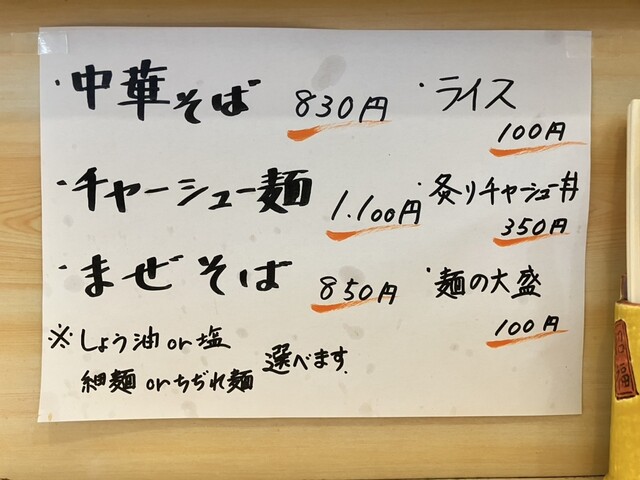 ・中華そば 830円
・チャーシュー麺 1.100円
・まぜそば 850円
※しょう油or塩
細麺orちぢれ麺 選べます.
・ライス
100円
・炙りチャーシュー丼
350円
・麺の大盛
100円
福